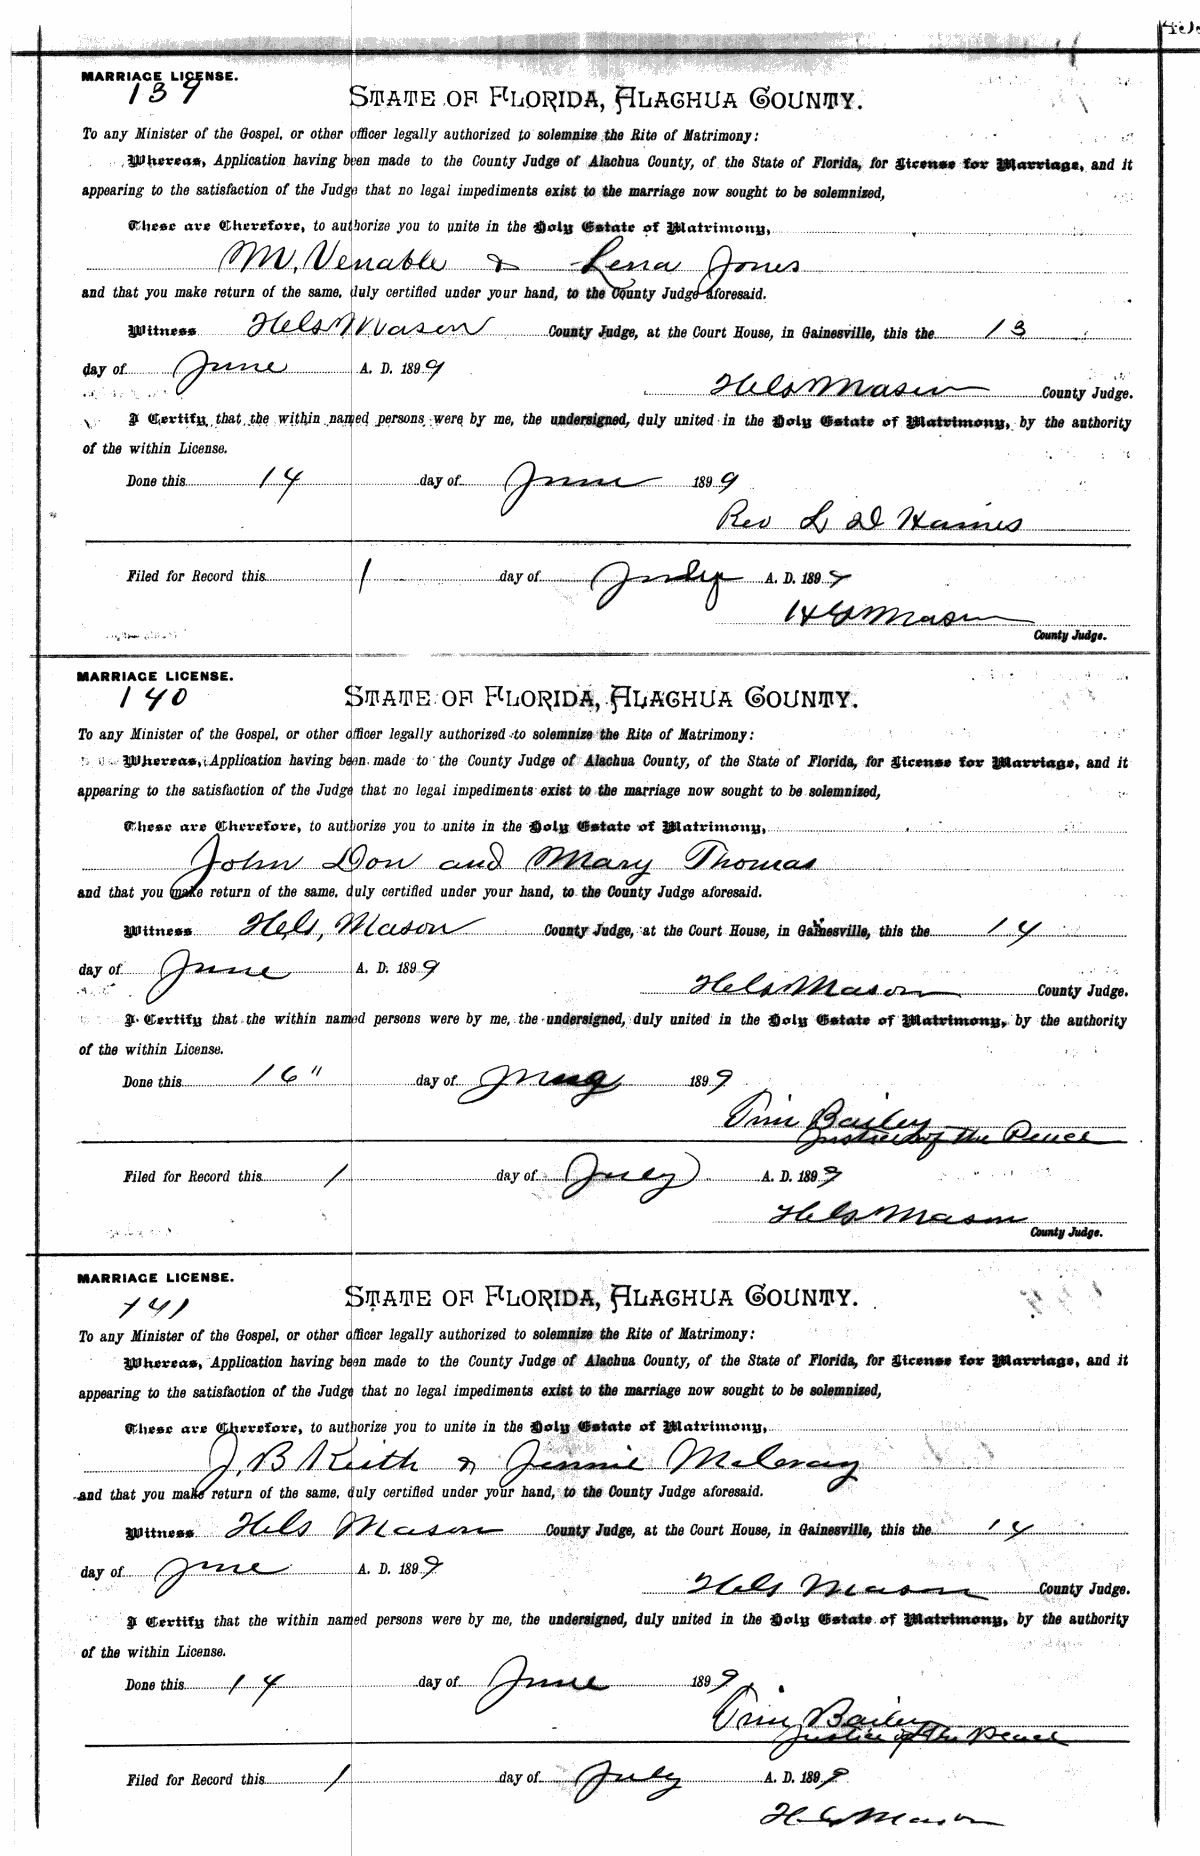 MARRIAGE LICENSE.
139
STATE OF FLORIDA, ALACHUA COUNTY.
To any Minister of the Gospel, or other officer legally authorized to solemnize the Rite of Matrimony:
Whereas, Application having been made to the County Judge of Alachua County, of the State of Florida, for License for Marriage, and it
appearing to the satisfaction of the Judge that no legal impediments exist to the marriage now sought to be solemnized,
These are Therefore, to authorize you to unite in the Holy Estate of Matrimony,
M. Venable & Lena Jones
and that you make return of the same, duly certified under your hand, to the County Judge aforesaid.
Witness Mason County Judge, at the Court House, in Gainesville, this the 13
day of June A. D. 1899
Mason County Judge.
I Certify that the within named persons were by me, the undersigned, duly united in the Holy Estate of Matrimony, by the authority
of the within License.
Done this 14 day of June 1899
Rev L D Haines
Filed for Record this 1 day of July A. D. 1899
Mason
County Judge.
MARRIAGE LICENSE.
140
STATE OF FLORIDA, ALACHUA COUNTY.
To any Minister of the Gospel, or other officer legally authorized to solemnize the Rite of Matrimony:
Whereas, Application having been made to the County Judge of Alachua County, of the State of Florida, for License for Marriage, and it
appearing to the satisfaction of the Judge that no legal impediments exist to the marriage now sought to be solemnized,
These are Therefore, to authorize you to unite in the Holy Estate of Matrimony,
John Don and Mary Thomas
and that you make return of the same, duly certified under your hand, to the County Judge aforesaid.
Witness Mason County Judge, at the Court House, in Gainesville, this the 14
day of June A. D. 1899
Mason County Judge.
I Certify that the within named persons were by me, the undersigned, duly united in the Holy Estate of Matrimony, by the authority
of the within License.
Done this 16" day of 1899
Tim Bailey
Justice of the Peace
Filed for Record this 1 day of July A. D. 1899
Mason
County Judge.
MARRIAGE LICENSE.
141
STATE OF FLORIDA, ALACHUA COUNTY.
To any Minister of the Gospel, or other officer legally authorized to solemnize the Rite of Matrimony:
Whereas, Application having been made to the County Judge of Alachua County, of the State of Florida, for License for Marriage, and it
appearing to the satisfaction of the Judge that no legal impediments exist to the marriage now sought to be solemnized,
These are Therefore, to authorize you to unite in the Holy Estate of Matrimony,
J. B Keith & Jennie McCray
and that you make return of the same, duly certified under your hand, to the County Judge aforesaid.
Witness Mason County Judge, at the Court House, in Gainesville, this the 14
day of June A. D. 1899
Mason County Judge.
I Certify that the within named persons were by me, the undersigned, duly united in the Holy Estate of Matrimony, by the authority
of the within License.
Done this 14 day of June 1899
Tim Bailey
Justice of the Peace
Filed for Record this 1 day of July A. D. 1899
Mason